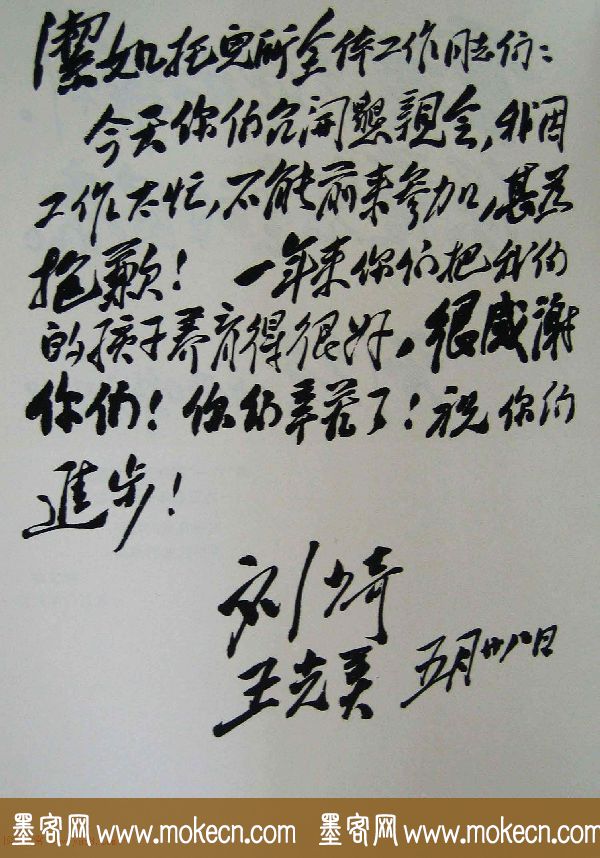 潔如托児所全体工作同志们：
今天你们召開懇親会，我因
工作太忙，不能前来参加，甚为
抱歉！ 一年来你们把我们
的孩子养育得很好，很感謝
你们！你们辛苦了！祝你们
進步！
刘少奇
王光美 五月廿八日
墨客网 www.mokecn.com 墨客网 www.mokecn.com